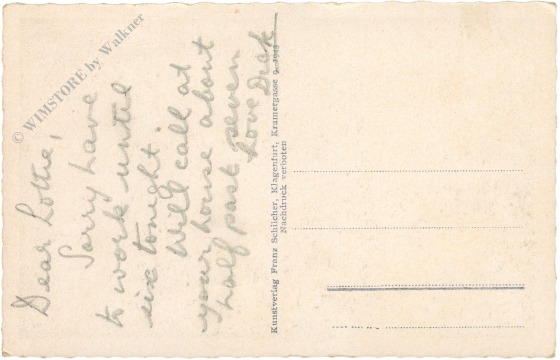 Dear Lottie,
Sorry have
to work until
six tonight.
Will call at
your house about
half past seven
Love Dick
Kunstverlag Franz Schilcher, Klagenfurt, Kramergasse 9, 1943
Nachdruck verboten
© WIMSTORE by Walkner